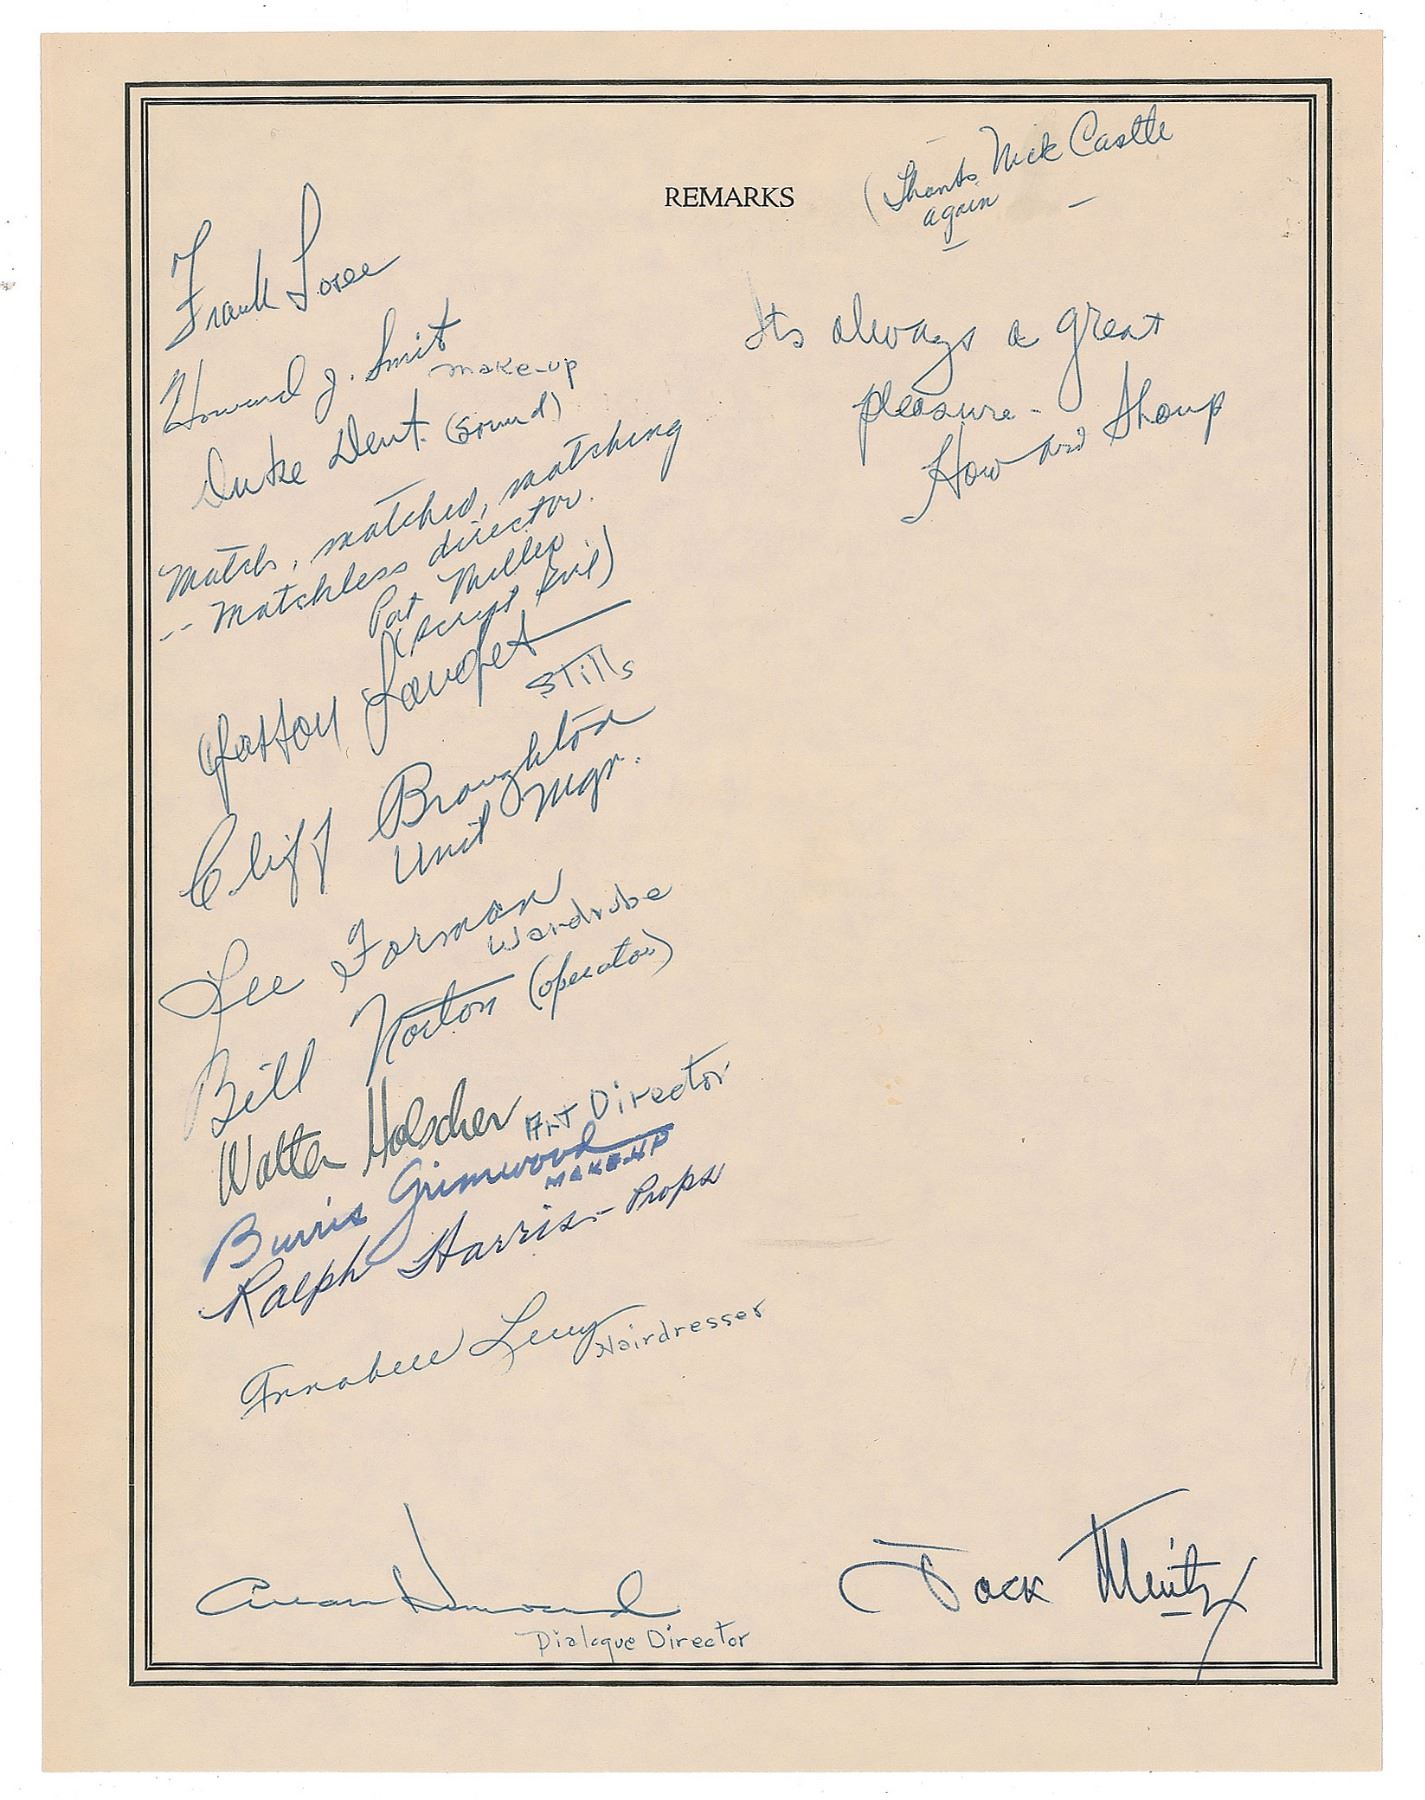 REMARKS
(Thanks Nick Castle
again
Frank Losee
Its always a great
pleasure-
Howard Shoup
Howard J. Smit
make-up
Duke Dent (Sound)
Match, matched, matching
-- matchless director.
Pat Miller
(script girl)
Gaston Longet
Stills
Cliff Broughton
Unit Mgr.
Lee Forman
Wardrobe
Bill Norton (operator)
Walter Holscher Art Director
Burris Grimwood
MAKE-UP
Ralph Harris - Props
Annabell Levy Hairdresser
Howard
Dialogue Director
Jack Mintz